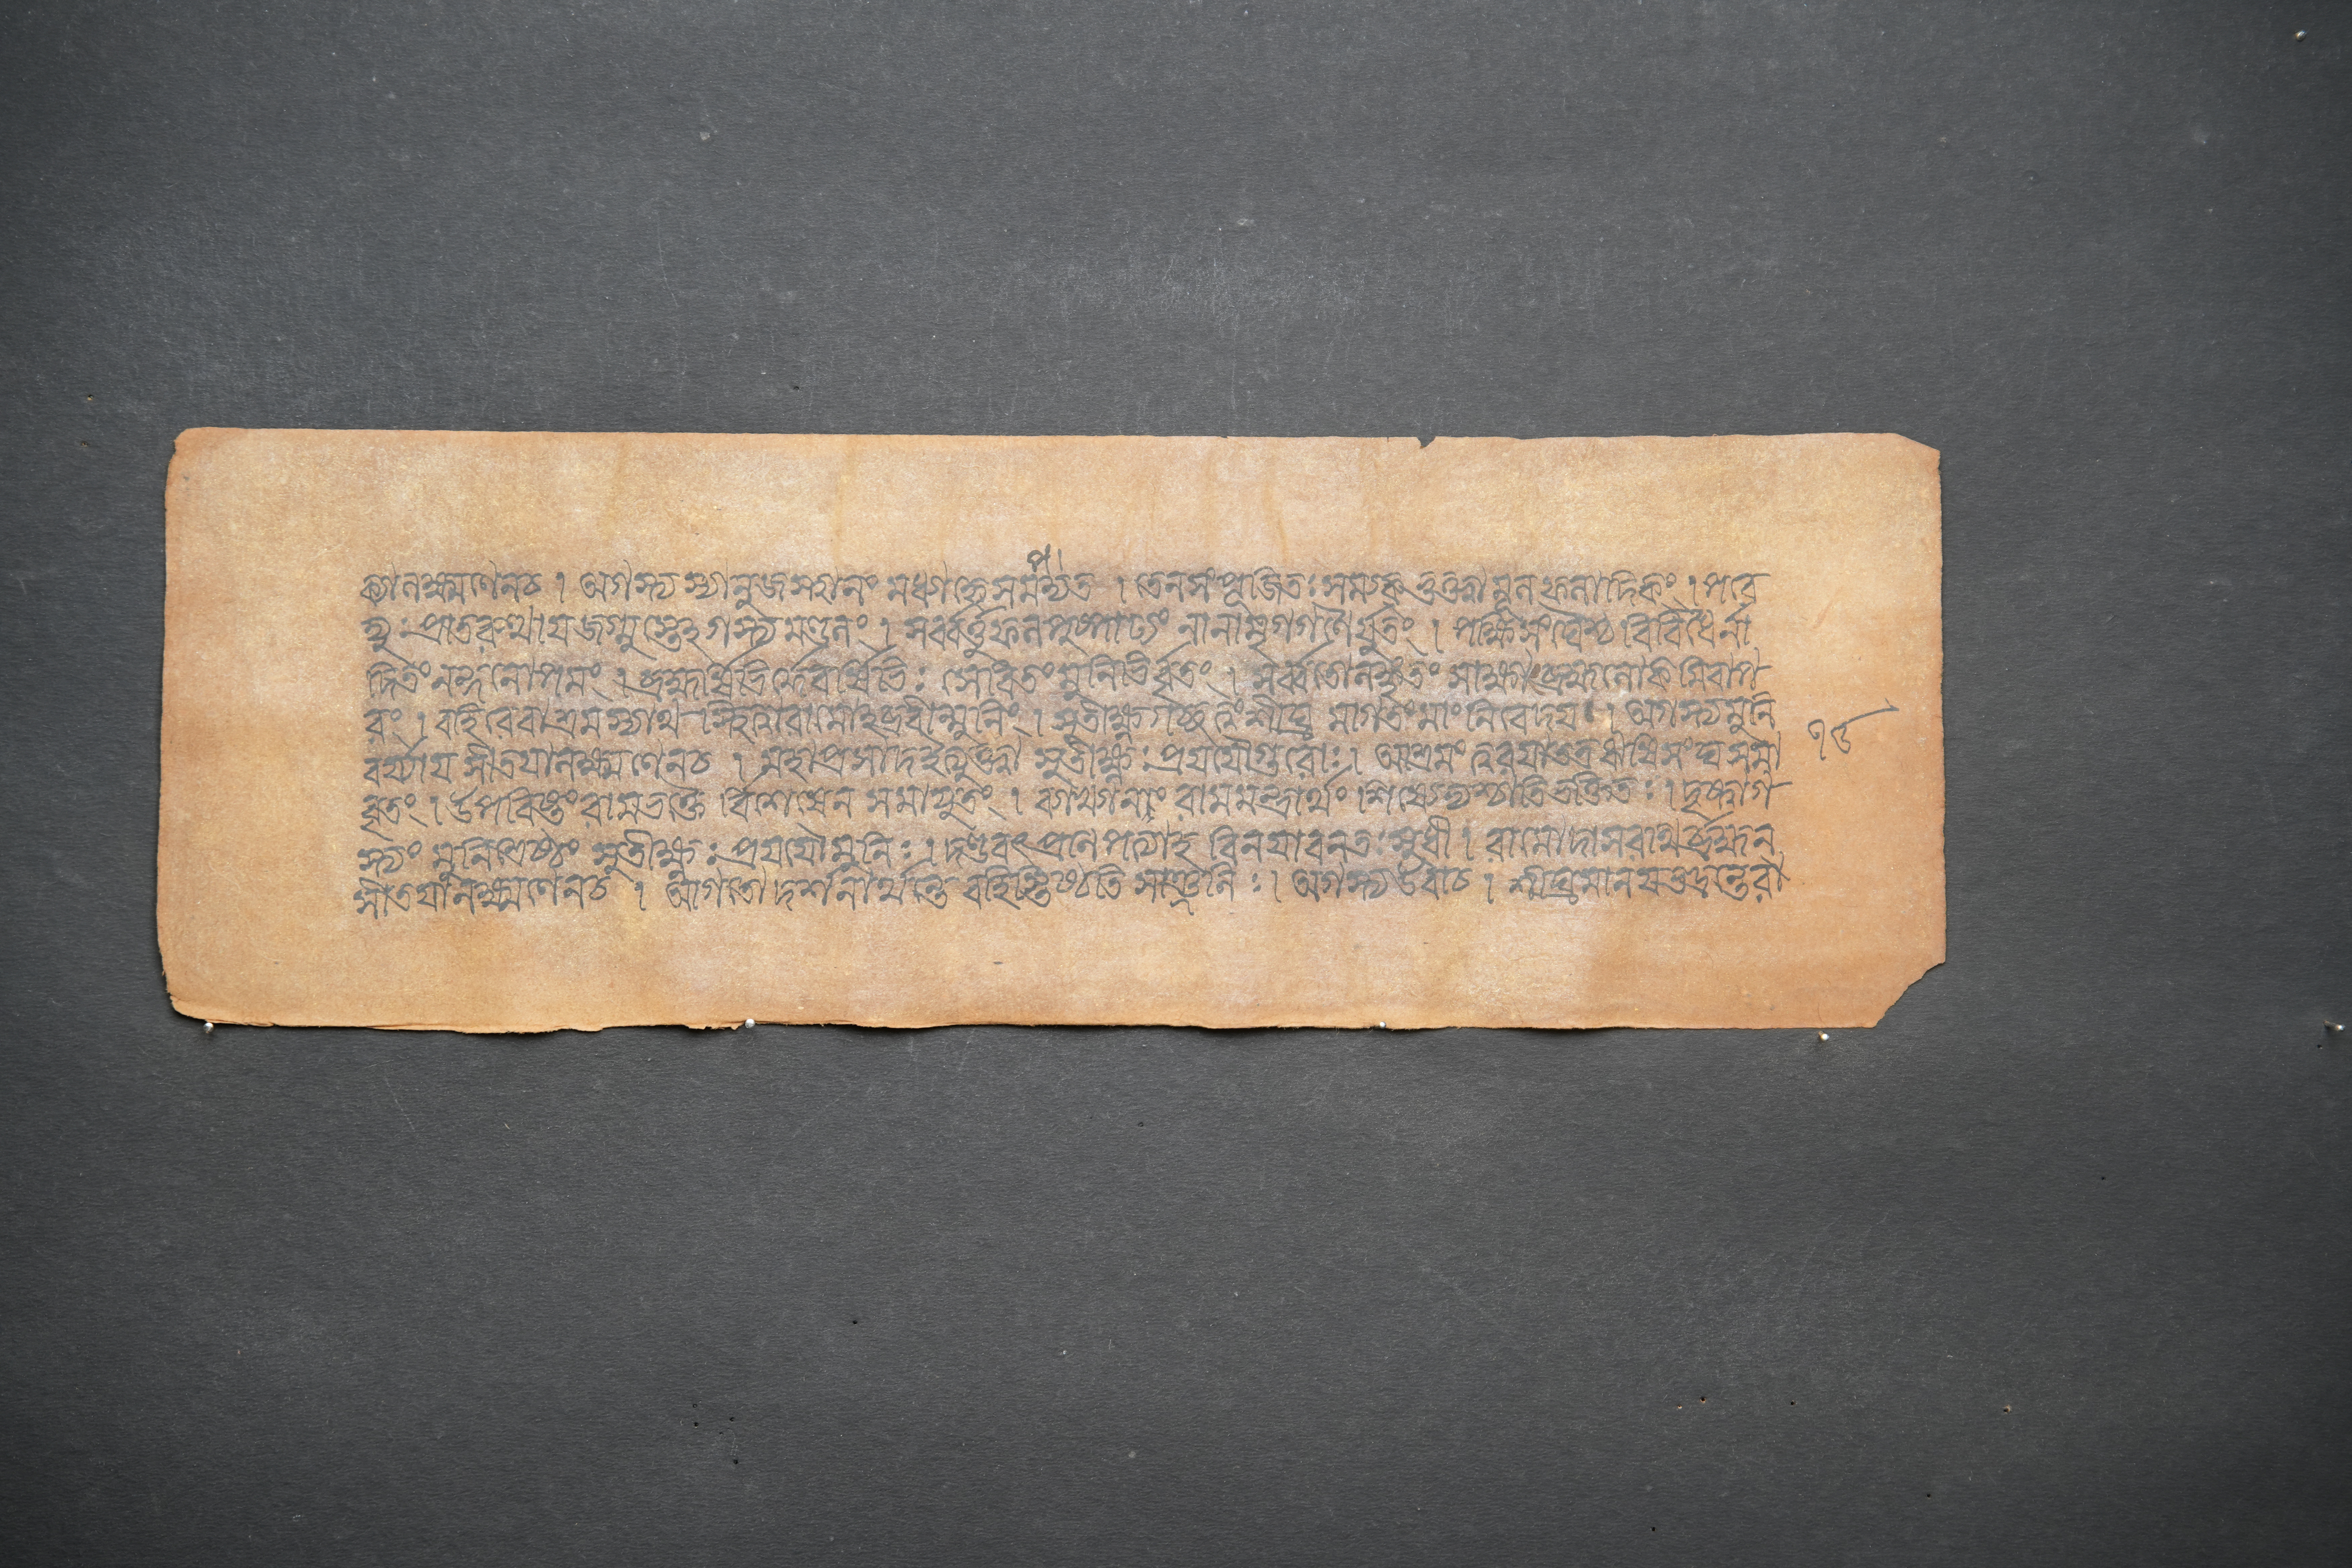 প
ক্যালক্ষ্মণেনচ । অগস্ত্যস্যানুজস্থানং মধ্যাহ্নেসমপদ্যত । তেনসংপূজিতঃসম্যক্ভুক্ত্বামূলফলাদিকং । পরে
দ্যুঃপ্রাতরুত্থায়জগ্মুস্তেহগস্ত্যমণ্ডলং । সর্ব্বর্ত্তুফলপুষ্পাঢ্যং নানামৃগগণৈর্যুতং । পক্ষিসংঘৈশ্চ বিবিধৈর্না
দিতং নন্দনোপমং । ব্রহ্মর্ষিভির্দ্দেবর্ষিভিঃ সেবিতংমুনিভির্ব্বৃতং । সর্ব্বতোলঙ্কৃতং সাক্ষাদ্ব্রহ্মলোকমিবাপ
রং । বহিরেবাশ্রমস্যাথ স্থিত্বারামোহব্রবীন্মুনিং । সুতীক্ষ্ণগচ্ছত্বংশীঘ্র মাগতংমাংনিবেদয় । অগস্ত্যমুনি
বর্য্যায় সীতয়ালক্ষ্মণেনচ । মহাপ্রসাদইত্যুক্ত্বা সুতীক্ষ্ণঃপ্রযযৌগুরোঃ । আশ্রমং ত্বরয়াতত্রঋষিসংঘসমা
বৃতং । উপবিষ্টংরামভক্তৈ র্বিশেষেণ সমাযুতং । ব্যাখ্যাতরামমন্ত্রার্থং শিষ্যেভ্যশ্চাতিভক্তিতঃ । দৃষ্ট্বাগ
স্ত্যং মুনিশ্রেষ্ঠং সুতীক্ষ্ণঃপ্রযযৌমুনিঃ । দণ্ডবৎপ্রণিপত্যাহ বিনয়াবনতঃসুধী । রামোদাসরাথর্ব্রহ্মন
সীতয়ালক্ষ্মণেনচ । আগতোদর্শনার্থন্তে বহিস্তিষ্ঠতি সাঞ্জলিঃ । অগস্ত্যউবাচ । শীঘ্রমানয়ভদ্রন্তেরা
১৫